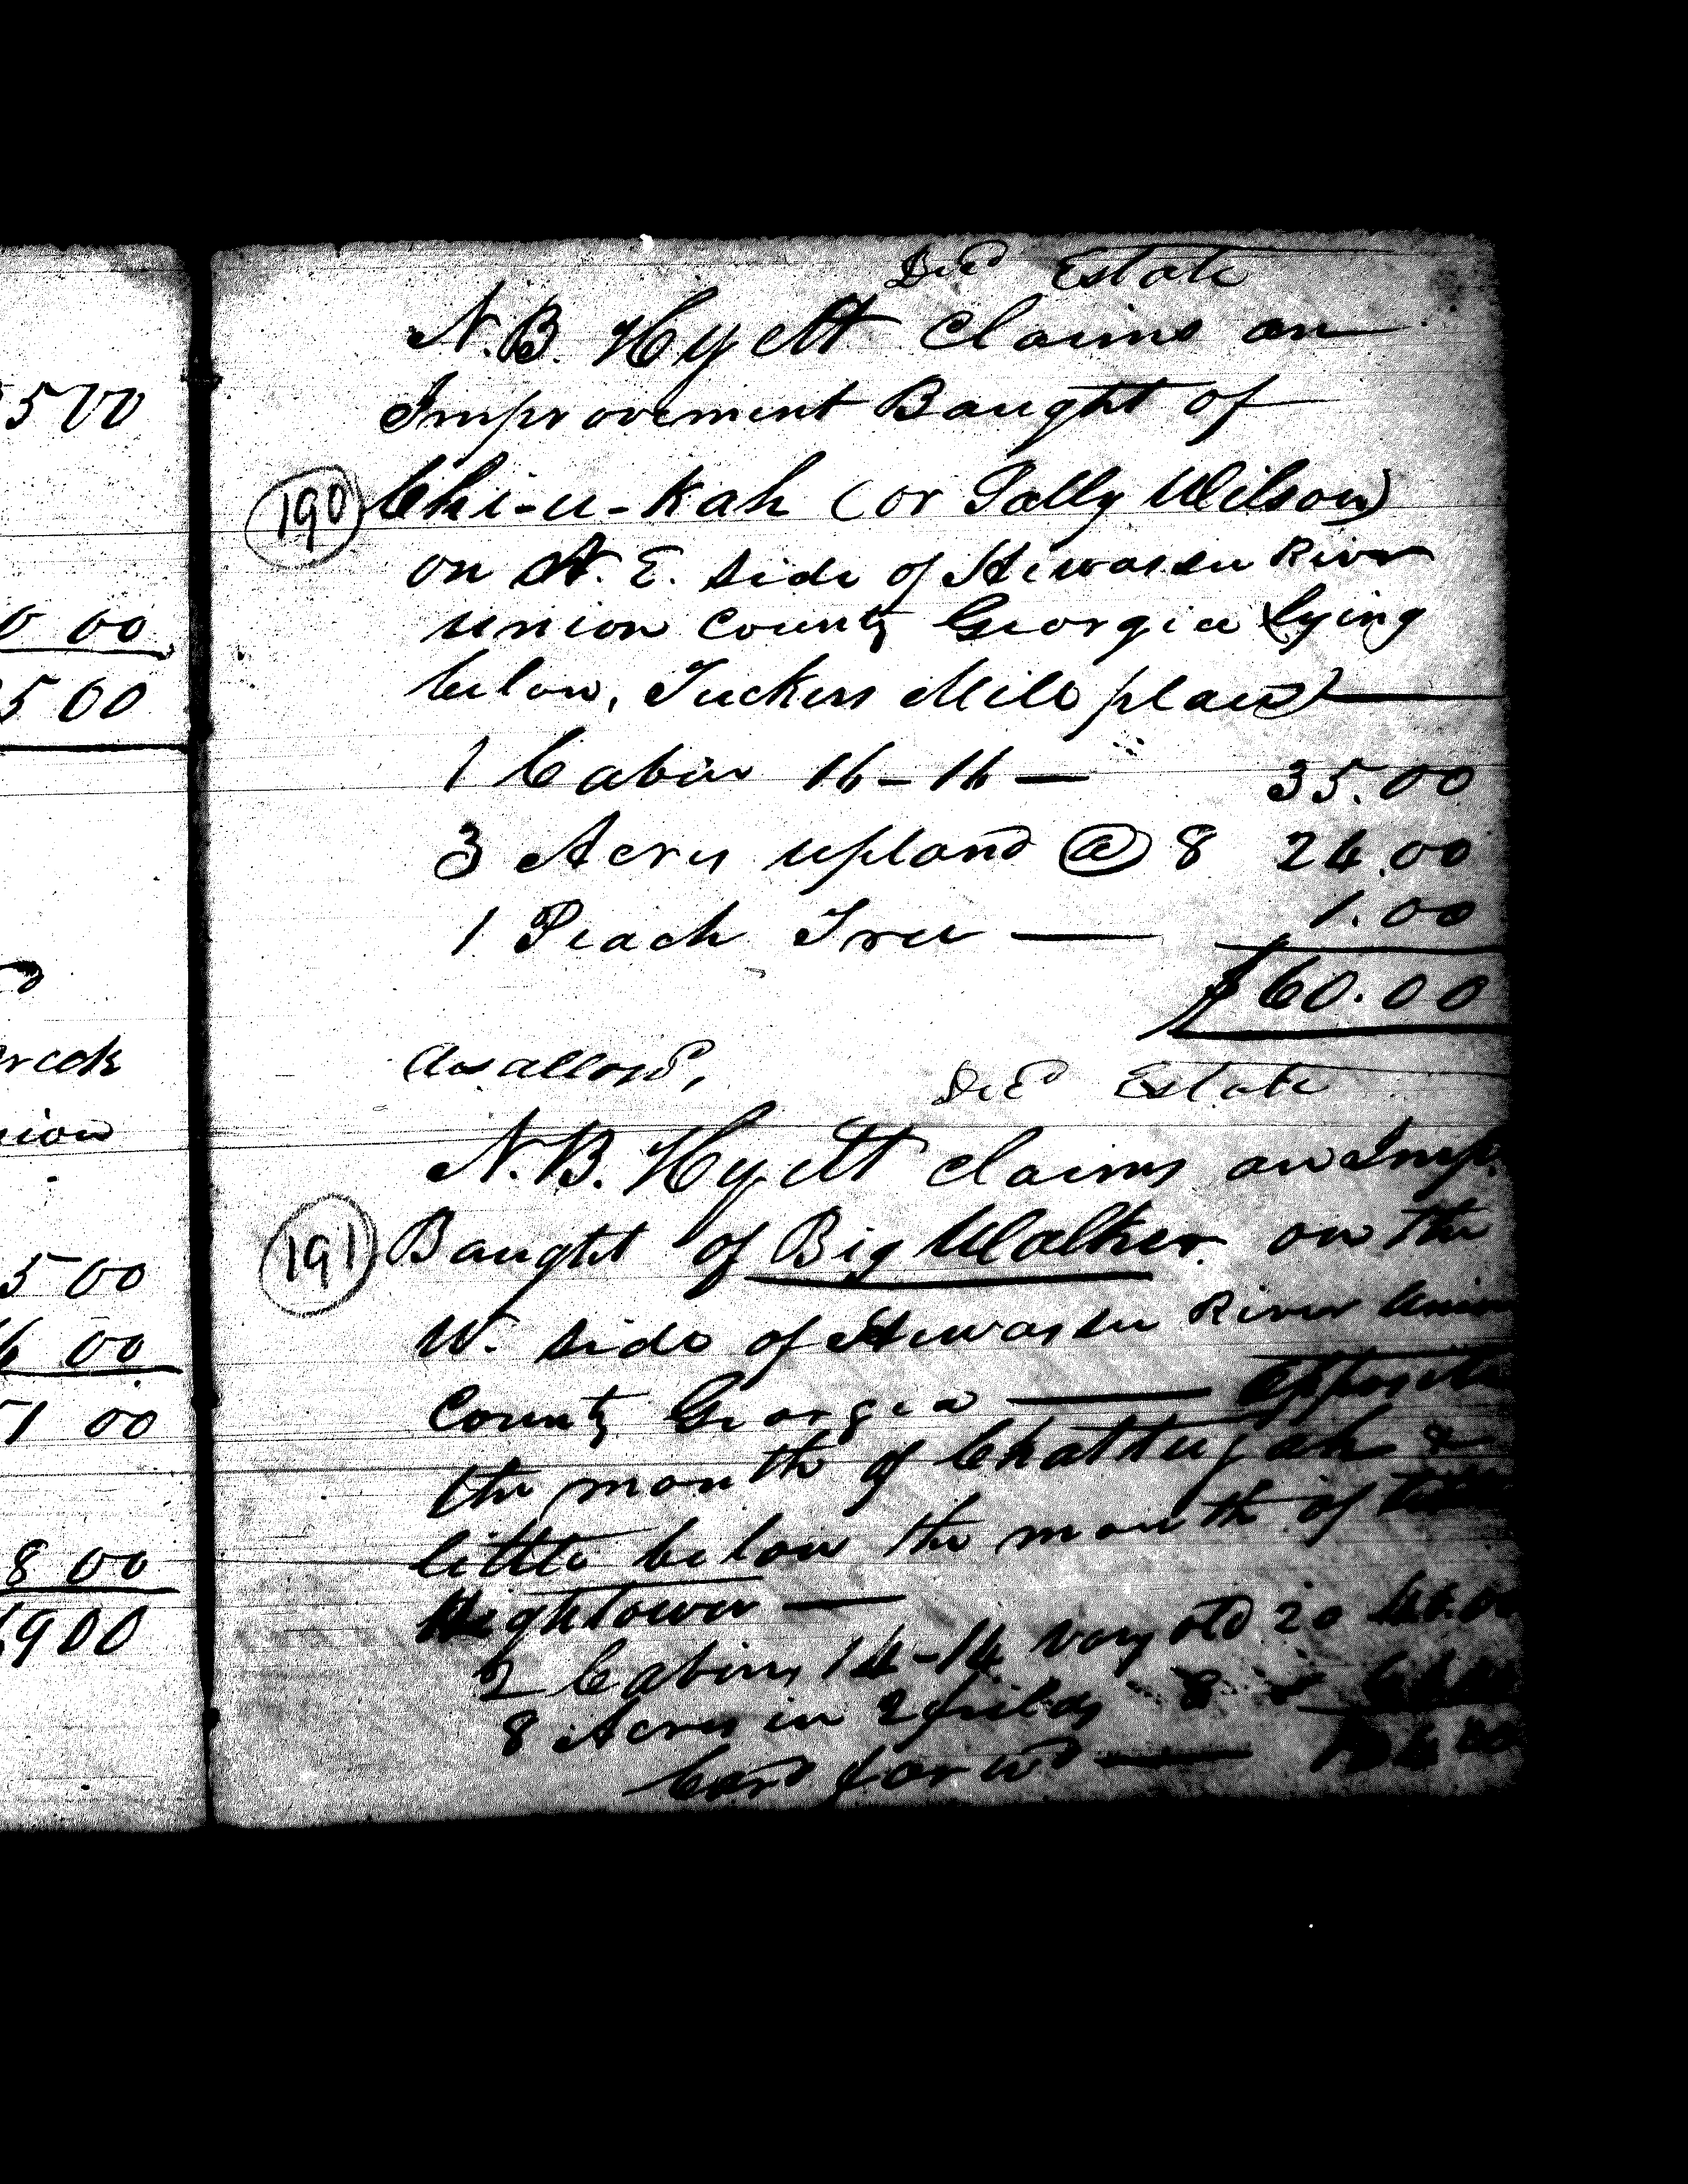 500
0 00
500
rcek
nion
5 00
6 00
1 00
8 00
900
Dec'd Estate
N.B. Hyett Claims an
Improvement Baught of
190 Chi-u-kah (or Sally Wilson)
on N. E. side of Hiwassee River
union county Georgia lying
below, Tuckers Mill place)
1 Cabin 16-16 — 35.00
3 Acres upland @ 8 24.00
1 Peach Tree — 1.00
$60.00
Disallow'd,
Dec'd Estate
N.B. Hyett claims an Imp.
191 Baught of Big Walker on the
W. side of Hiwassee River Union
County Georgia — opposite
the mouth of Chattugah &
little below the mouth of
Hightower —
2 Cabins 14-14 very old 20 40.00
8 Acres in 2 fields 8
Card forwd —